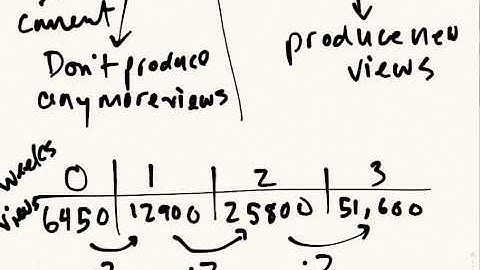 comment
Don't produce
any more views
produce new
views
weeks 0 1 2 3
views 6450 12900 25800 51,600
·2 ·2